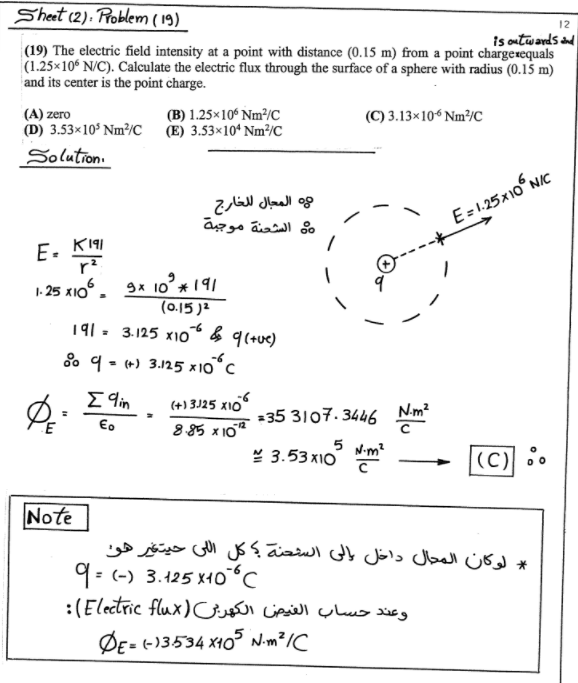 Sheet (2): Problem (19)
12
is outwards and
(19) The electric field intensity at a point with distance (0.15 m) from a point charge equals
(1.25×10⁶ N/C). Calculate the electric flux through the surface of a sphere with radius (0.15 m)
and its center is the point charge.
(A) zero (B) 1.25×10⁶ Nm²/C (C) 3.13×10⁻⁶ Nm²/C
(D) 3.53×10⁵ Nm²/C (E) 3.53×10⁴ Nm²/C
Solution.
∵ المجال للخارج
∴ الشحنة موجبة
E = 1.25×10⁶ N/C
+
q
E = K|q| / r²
1.25 ×10⁶ = 9× 10⁹ * |q| / (0.15)²
|q| = 3.125 ×10⁻⁶ & q (+ve)
∴ q = (+) 3.125 ×10⁻⁶ C
Ø_E = Σ q_in / ε₀ = (+) 3.125 ×10⁻⁶ / 8.85 ×10⁻¹² = 353107.3446 N.m²/C
≅ 3.53 ×10⁵ N.m²/C → (C) ∴
Note
* لو كان المجال داخل إلى الشحنة ؟ كل اللي حيتغير هو:
q = (-) 3.125 ×10⁻⁶ C
وعند حساب الفيض الكهربي (Electric flux):
ØE = (-)3.534 ×10⁵ N.m²/C